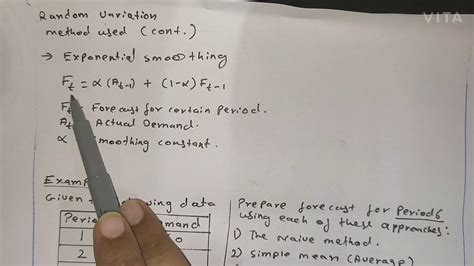 VITA
Random Variation
method used (cont.)
→ Exponential smoothing
Ft = α (At-1) + (1-α) Ft-1
Ft Forecast for certain Period.
At Actual Demand.
α smoothing constant.
Example
Given data
Period
1
2
Prepare forecast for Period 6
using each of these approaches:
1) The Naive method.
2) simple mean (Average)